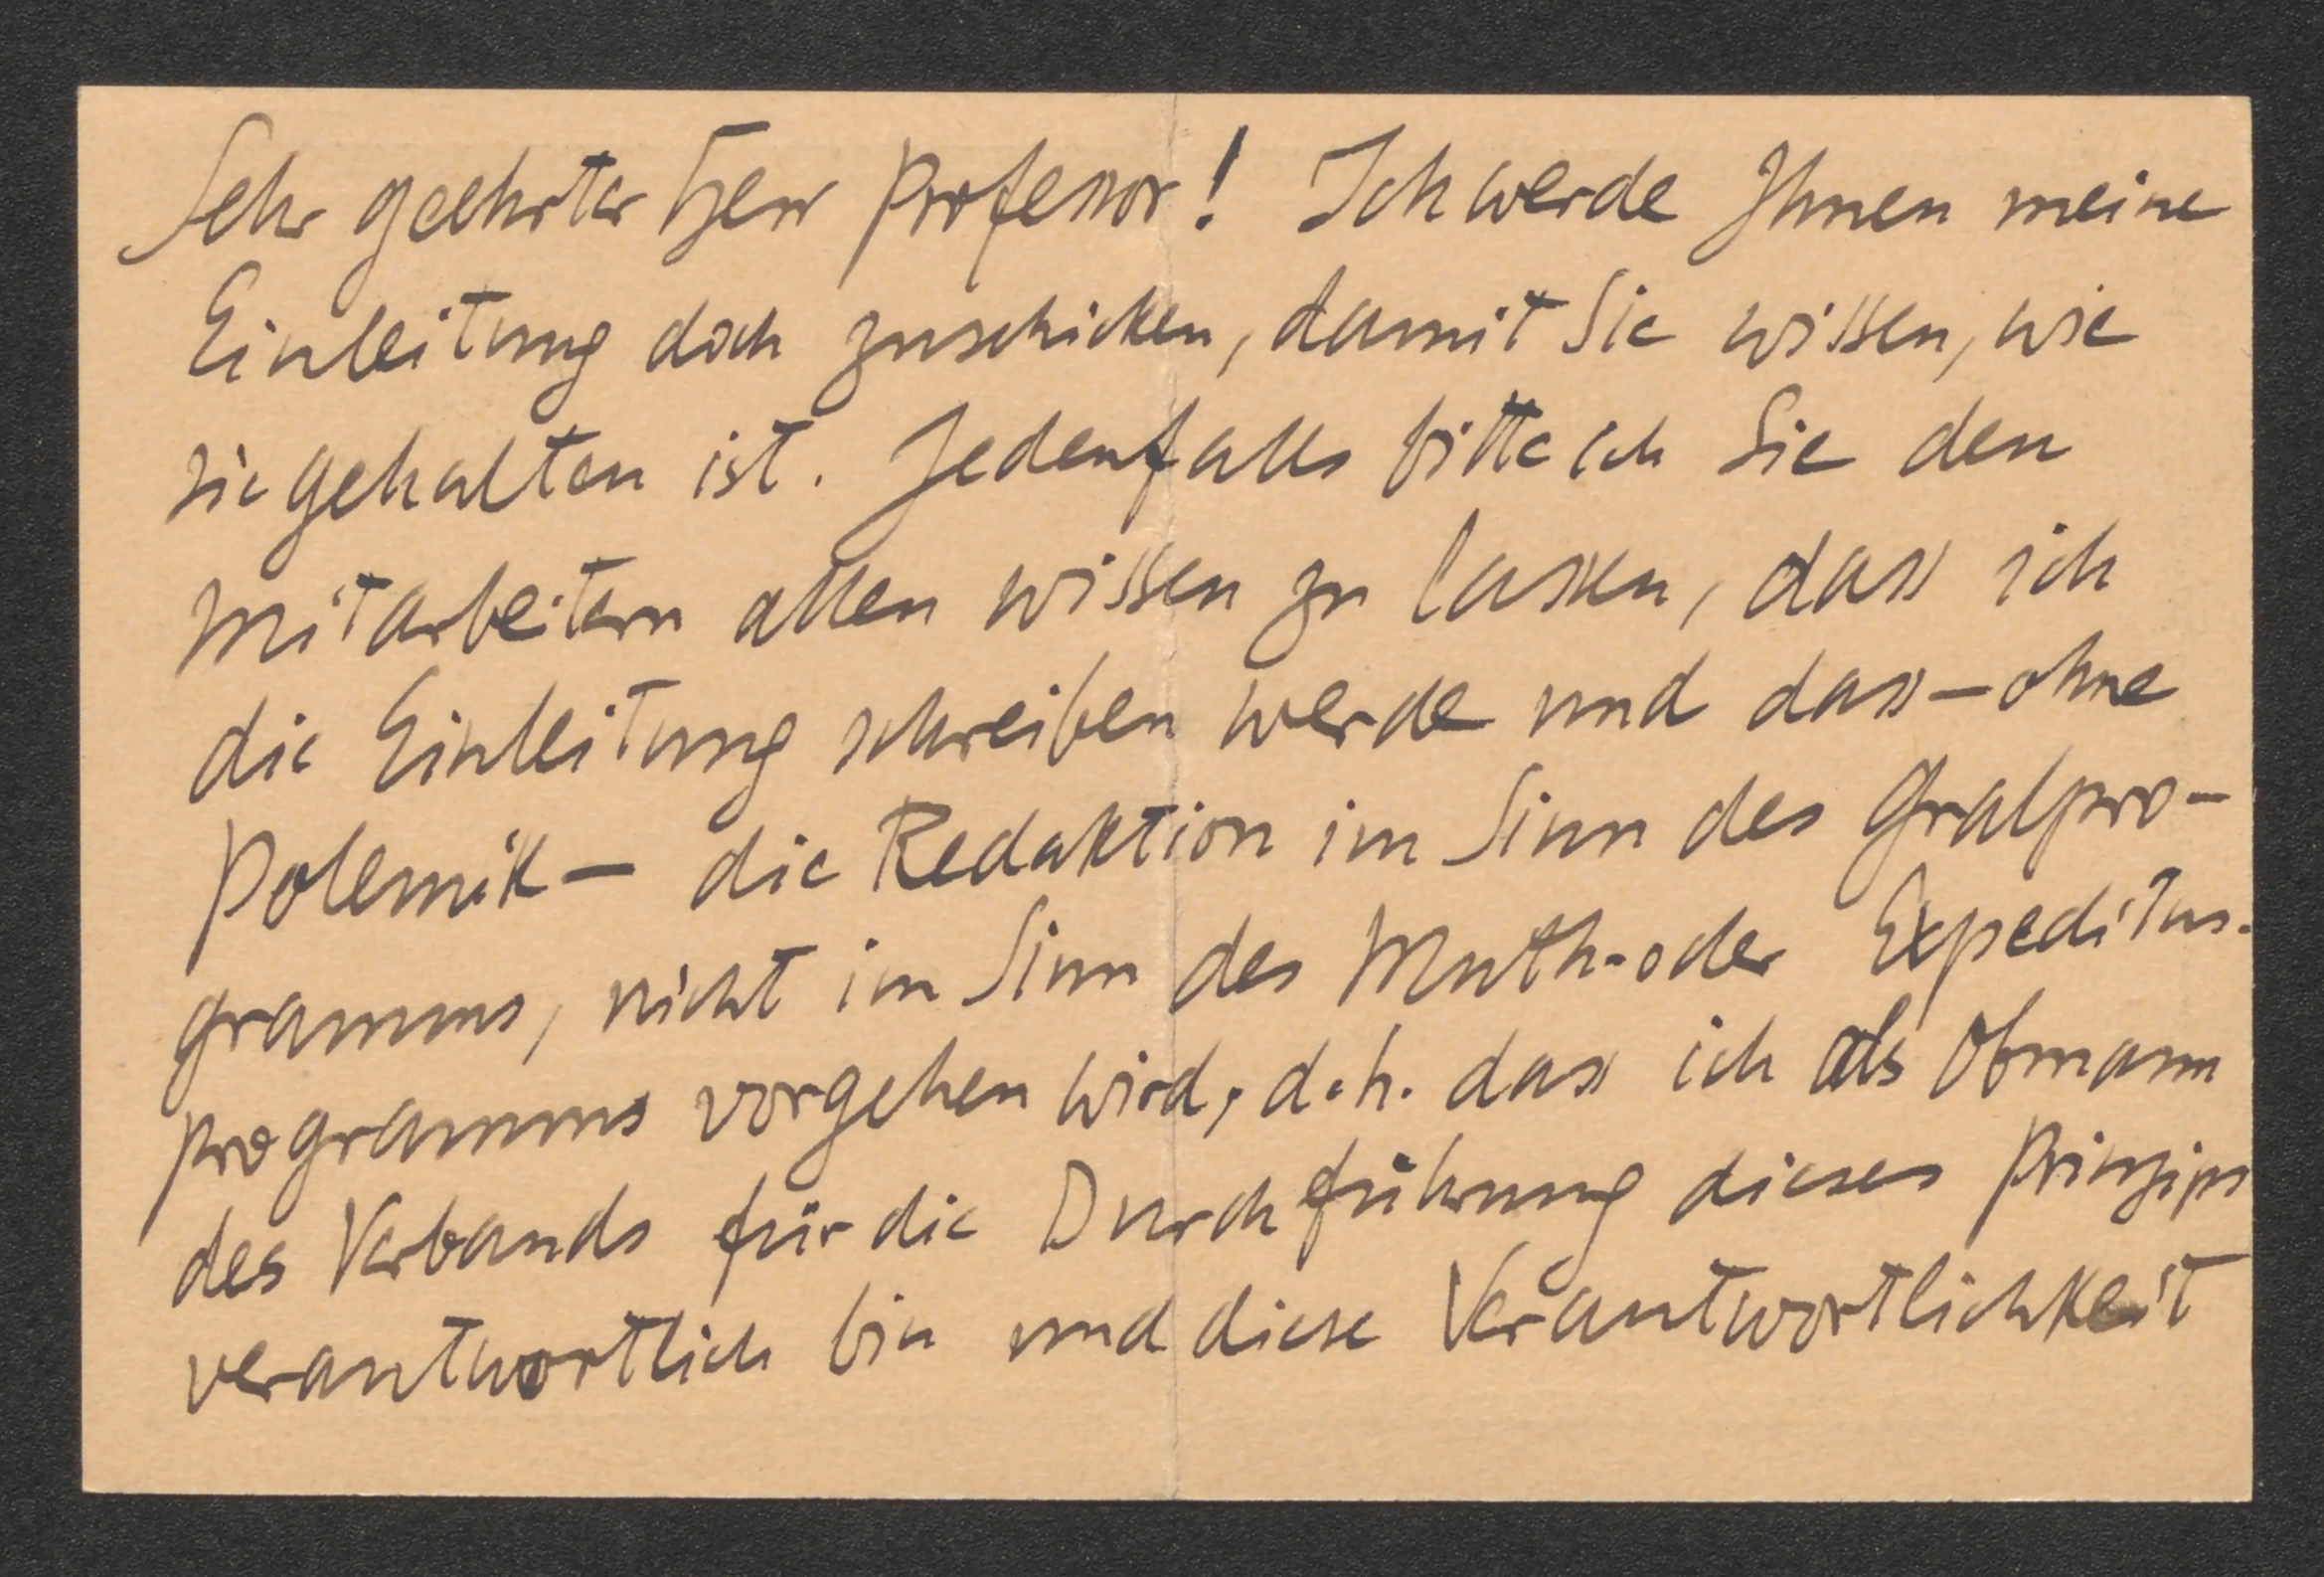 Sehr geehrter Herr Professor! Ich werde Ihnen meine
Einleitung doch zuschicken, damit Sie wissen, wie
sie gehalten ist. Jedenfalls bitte ich Sie den
Mitarbeitern allen wissen zu lassen, dass ich
die Einleitung schreiben werde und dass – ohne
Polemik – die Redaktion im Sinn des Gralpro-
gramms, nicht im Sinn des Muth- oder Expeditus-
programms vorgehen wird, d.h. dass ich als Obmann
des Verbands für die Durchführung dieses Prinzips
verantwortlich bin und diese Verantwortlichkeit